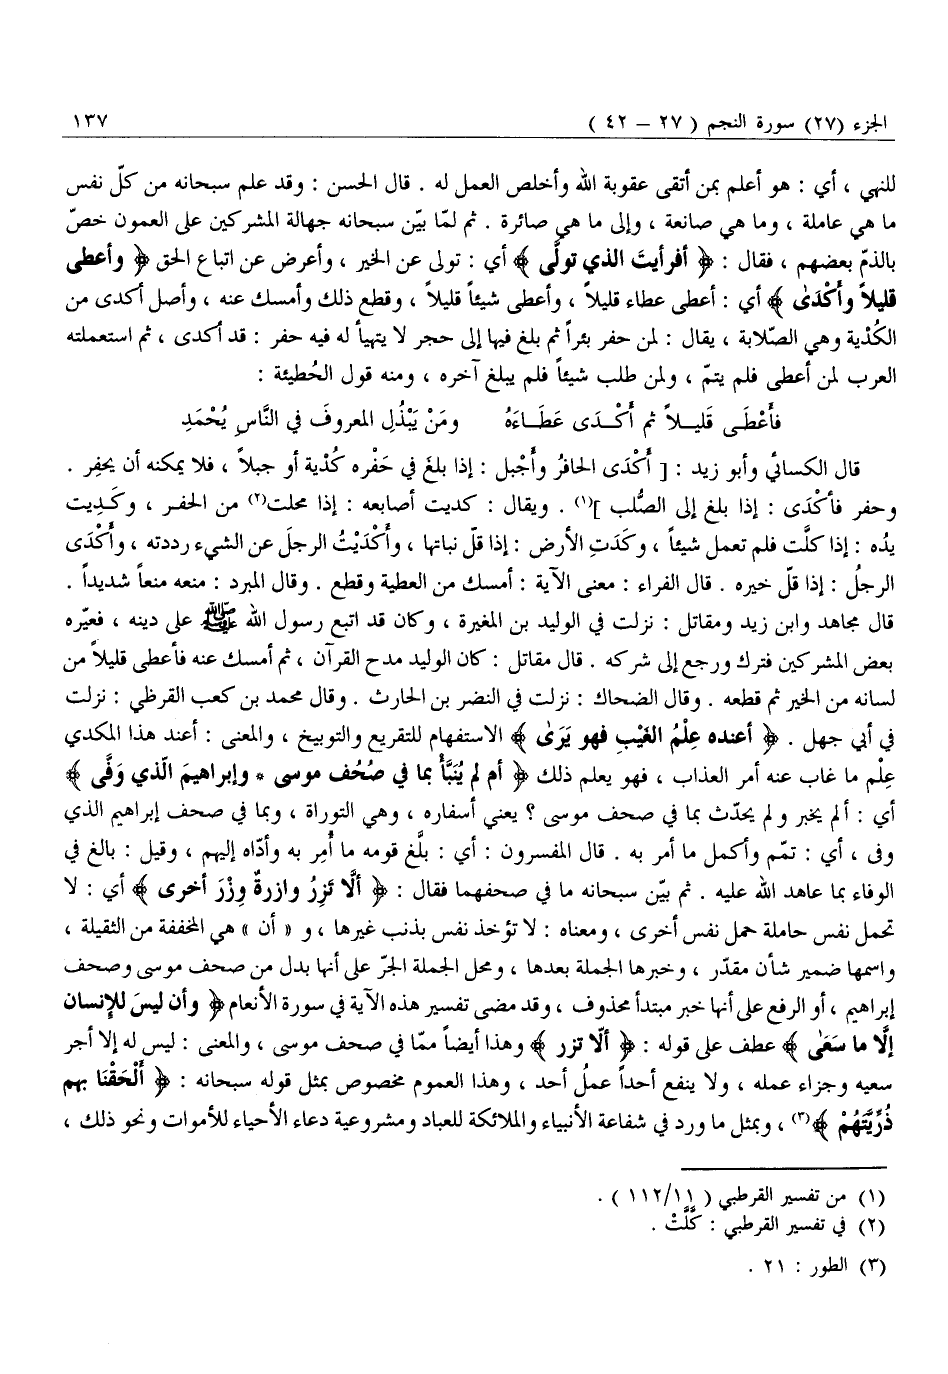 الجزء (٢٧) سورة النجم ( ٢٧ – ٤٢ ) ١٣٧
للنهي ، أي : هو أعلم بمن أتقى عقوبة الله وأخلص العمل له . قال الحسن : وقد علم سبحانه من كلّ نفس
ما هي عاملة ، وما هي صانعة ، وإلى ما هي صائرة . ثم لمّا بيّن سبحانه جهالة المشركين على العمون خصّ
بالذمّ بعضهم ، فقال : ﴿ أفرأيتَ الذي تولَّى ﴾ أي : تولى عن الخير ، وأعرض عن اتباع الحق ﴿ وأعطى
قليلاً وأَكْدَىٰ ﴾ أي : أعطى عطاء قليلاً ، وأعطى شيئاً قليلاً ، وقطع ذلك وأمسك عنه ، وأصل أكدى من
الكُدْية وهي الصّلابة ، يقال : لمن حفر بئراً ثم بلغ فيها إلى حجر لا يتهيأ له فيه حفر : قد أكدى ، ثم استعملته
العرب لمن أعطى فلم يتمّ ، ولمن طلب شيئاً فلم يبلغ آخره ، ومنه قول الحُطيئة :
فأَعْطَى قَلِيلاً ثم أَكْدَى عَطَاءَهُ ومَنْ يَبْذُلِ المعروفَ في النَّاسِ يُحْمَدِ
قال الكسائي وأبو زيد : [ أَكْدَى الحافرُ وأَجْبل : إذا بلغَ في حَفْره كُدْية أو جبلاً ، فلا يمكنه أن يحفِر .
وحفر فأكْدَى : إذا بلغ إلى الصُّلب ](١) . ويقال : كديت أصابعه : إذا محلت(٢) من الحفر ، وكَدِيت
يدُه : إذا كلَّت فلم تعمل شيئاً ، وكَدَتِ الأرض : إذا قلّ نباتها ، وأَكْدَيْتُ الرجلَ عن الشيء رددته ، وأَكْدَى
الرجلُ : إذا قلّ خيره . قال الفراء : معنى الآية : أمسك من العطية وقطع . وقال المبرد : منعه منعاً شديداً .
قال مجاهد وابن زيد ومقاتل : نزلت في الوليد بن المغيرة ، وكان قد اتبع رسول الله ﷺ على دينه ، فعيّره
بعض المشركين فترك ورجع إلى شركه . قال مقاتل : كان الوليد مدح القرآن ، ثم أمسك عنه فأعطى قليلاً من
لسانه من الخير ثم قطعه . وقال الضحاك : نزلت في النضر بن الحارث . وقال محمد بن كعب القرظي : نزلت
في أبي جهل . ﴿ أعنده عِلْمُ الغَيْبِ فهو يَرَىٰ ﴾ الاستفهام للتقريع والتوبيخ ، والمعنى : أعند هذا المكدي
عِلْم ما غاب عنه أمر العذاب ، فهو يعلم ذلك ﴿ أم لم يُنَبَّأْ بما في صُحُف موسى * وإبراهيمَ الَّذي وَفَّى ﴾
أي : ألم يخبر ولم يحدّث بما في صحف موسى ؟ يعني أسفاره ، وهي التوراة ، وبما في صحف إبراهيم الذي
وفى ، أي : تمّم وأكمل ما أمر به . قال المفسرون : أي : بلَّغ قومه ما أُمِر به وأدّاه إليهم ، وقيل : بالغ في
الوفاء بما عاهد الله عليه . ثم بيّن سبحانه ما في صحفهما فقال : ﴿ ألَّا تَزِرُ وازرةٌ وِزْرَ أخرى ﴾ أي : لا
تحمل نفس حاملة حمل نفس أخرى ، ومعناه : لا تؤخذ نفس بذنب غيرها ، و « أن » هي المخففة من الثقيلة ،
واسمها ضمير شأن مقدّر ، وخبرها الجملة بعدها ، ومحل الجملة الجرّ على أنها بدل من صحف موسى وصحف
إبراهيم ، أو الرفع على أنها خبر مبتدأ محذوف ، وقد مضى تفسير هذه الآية في سورة الأنعام ﴿ وأن ليسَ للإنسان
إلَّا ما سَعَىٰ ﴾ عطف على قوله : ﴿ ألا تزر ﴾ وهذا أيضاً ممّا في صحف موسى ، والمعنى : ليس له إلا أجر
سعيه وجزاء عمله ، ولا ينفع أحداً عملُ أحد ، وهذا العموم مخصوص بمثل قوله سبحانه : ﴿ أَلْحَقْنَا بهم
ذُرِّيَّتَهُمْ ﴾(٣) ، وبمثل ما ورد في شفاعة الأنبياء والملائكة للعباد ومشروعية دعاء الأحياء للأموات ونحو ذلك ،
(١) من تفسير القرطبي ( ١١٢/١١ ) .
(٢) في تفسير القرطبي : كَلَّتْ .
(٣) الطور : ٢١ .